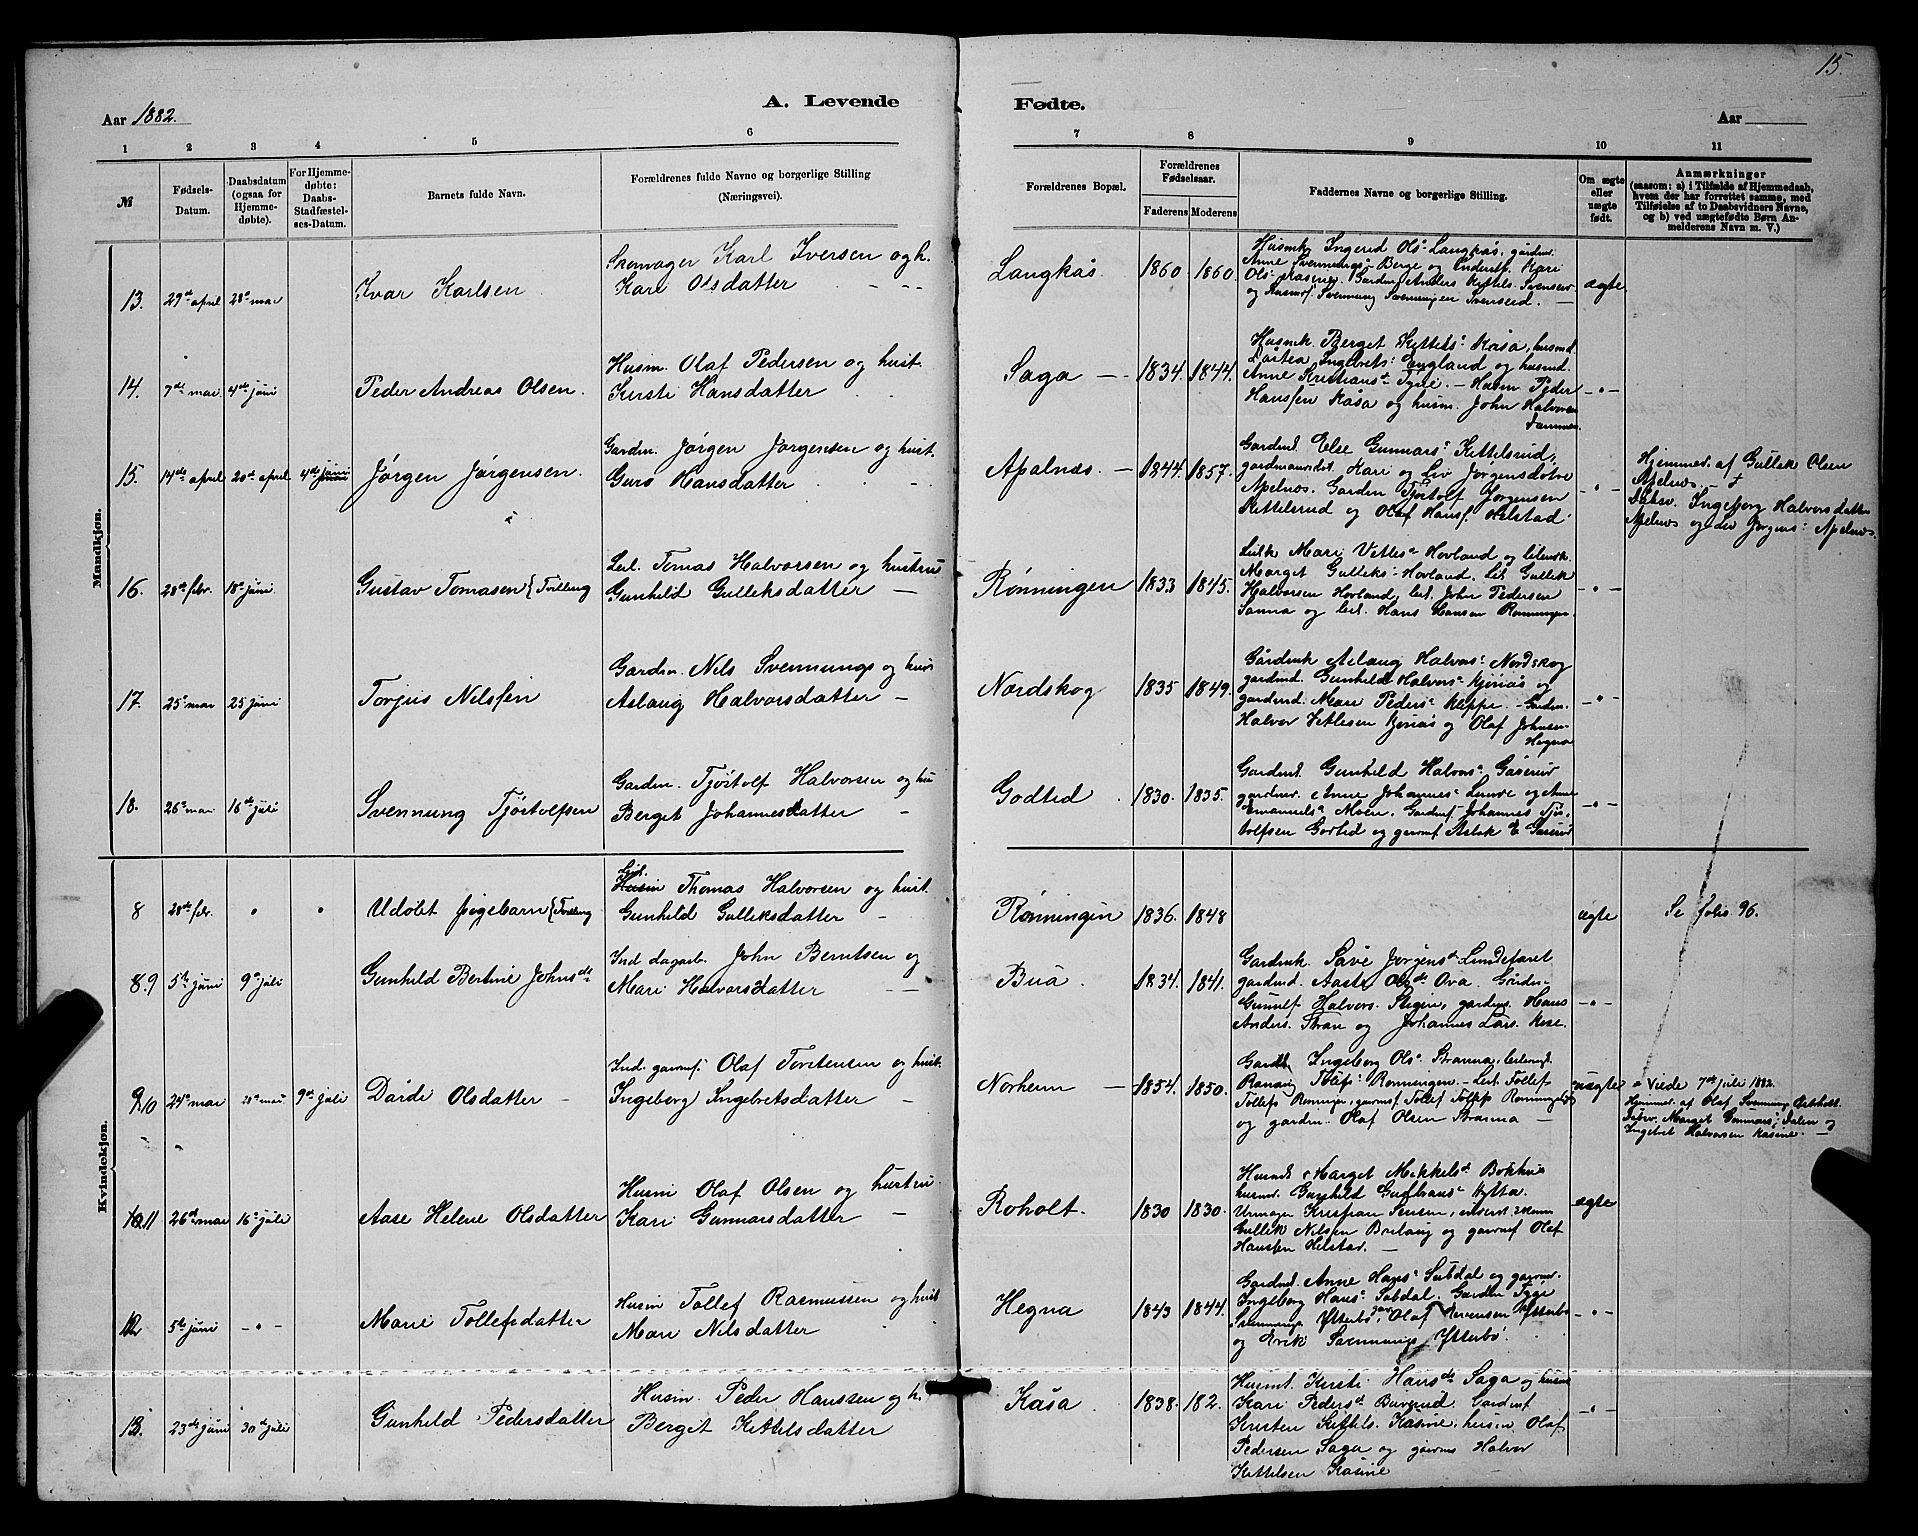 15.
Aar 1882.
A. Levende
Fødte.
Aar
1 2 3 4 5 6 7 8 9 10 11
№
Fødsels-
Datum.
Daabsdatum
(ogsaa for
Hjemme-
døbte).
For Hjemme-
døbte:
Daabs-
Stadfæstel-
ses-Datum.
Barnets fulde Navn.
Forældrenes fulde Navne og borgerlige Stilling
(Næringsvei).
Forældrenes Bopæl.
Forældrenes
Fødselsaar.
Faderens
Moderens
Faddernes Navne og borgerlige Stilling.
Om ægte
eller
uægte
født.
Anmærkninger
(saasom: a) i Tilfælde af Hjemmedaab,
hvem der har forrettet samme, med
Tilføielse af to Daabsvidners Navne,
og b) ved uægtefødte Børn An-
melderens Navn m. V.)
Mandkjøn.
13. 29de april 28de mai Ivar Karlsen
Skomager Karl Iversen og h.
Kari Olsdatter
Langkås 1860 1860
Husmk Ingerid Ols Langkås, gårdm.
Anne Svennungs Berge og
Ols Kasine. Gårdm Anders Kittels. Svenseid
og Svennung Svenningsen Svenseid.
ægte
14. 7de mai 4de juni Peder Andreas Olsen.
Husm. Olaf Pedersen og hust.
Kirsti Hansdatter
Saga 1834. 1844.
Husmk. Berget Kittels Kåsa, husmd.
Dårtea Ingebrets England og husmd.
Anne Kristians Tyne. Husm Peder
Hanssen Kåsa og husm. John Halvorsen
-"-
15. 14de april 20de april 4de juni Jørgen Jørgensen.
Gardm. Jørgen Jørgensen og hust.
Guro Hansdatter
Apalnæs. 1844. 1857.
Gardmd. Else Gunnars Kittelsrud,
gardmandsd. Kari og Liv Jørgensdøtre
Apelnos. Gardm Tjostolf Jørgensen
Kittelsrud og Olaf Hans. Helstad
-"-
Hjemmed. af Gullek Olsen
Apelnos.
Dåbsv. Ingeborg Halvorsdatter
Apelnos og Liv Jørgens Apelnos.
16. 28de febr. 18de juni Gustav Tomasen {Tvilling
Leil. Tomas Halvorsen og hustru
Gunhild Gulleksdatter
Rønningen 1833 1845.
Leilk Mari Vetles Hovland og leilmk.
Marget Gulleks Hovland. Leil Gullek
Halvorsen Hovland, leil. John Pedersen
Sanna og leil. Hans Hansen Rønningen.
-"-
17. 25de mai 25 juni Torjus Nilssen
Gardm. Nils Svennungs og hus
Aslaug Halvorsdatter
Nordskog 1835 1849.
Gårdmk Aslaug Halvors Nordskog
gardmd. Gunhild Halvors Kjeriås og
gardmd. Mari Peders Kleppe. Gardm.
Halvor Vetlesen Kjeriås og Olaf Johnsen
Hegna
-"-
18. 26de mai 16de juli Svennung Tjøstolfsen
Gardm. Tjøstolf Halvorsen og hu
Berget Johannesdatter
Godtid 1830. 1835.
Gardmd. Gunhild Halvors Gåserud
gardmd. Anne Johannes Lunde og Anne
Emanuels Moen. Gardmf. Johannes Tjøs-
tolfsen Godtid og garmf. Aslak E Gåserud
-"-
Kvindekjøn.
8 28de febr. " " Udøbt pigebarn {Tvilling
Leil.
Husm Thomas Halvorsen og hust.
Gunhild Gulleksdatter
Rønningen 1836. 1848
ægte
Se folio 96.
8.9 5te juni 9de juli Gunhild Bertine Johnsdt
Ind. dagarb. John Berntsen og
Mari Halvorsdatter
Bua. 1834. 1841.
Gardmk. Save Jørgens Lundefaret
gardmd. Aaste Olsdt Ova.
Halvors. Stigen, gardms. Hans
Anders. Stran og Johannes Lars. Kise.
-"-
9.10 24de mai 28de mai 9de juli Dårde Olsdatter
Ind. garmf. Olaf Torstensen og hust.
Ingeborg Ingebretsdatter
Norheim 1854. 1850.
Ingeborg Ols Stranna, leilmd.
Ranaug Tolefs Rønningen. Leil. Tollef
Tollefs Rønningen, garmf Tollef Tollefs Rønningen
og gardm. Olaf Olsen Stranna
uægte
Viede 7de juli 1882.
Hjemmed. af Olaf Svennungs Ørbholt.
Dåbsv. Marget Gunnars Dalen og
Ingebret Halvorsen Kåsine.
10.11 26de mai 16de juli Aase Helene Olsdatter
Husm Olaf Olsen og hustru
Kari Gunnarsdatter
Roholt. 1830 1830.
Husmd Marget Mikkels Bokhus
husmd. Gunhild Hytta.
Urmager Kristian Jensen,
Gullek Nilsen Brelaug og garmf Olaf
Hanssen Helstad.
ægte
12 5te juni -"- Marie Tollefsdatter
Husm Tollef Rasmussen og hust
Mari Nilsdatter
Hegna 1843 1844.
Gardmd. Anne Hans Subdal og garmd.
Ingeborg Hans Subdal. Gardm Tyge
Svennungs Ytterbø, Olaf Iversen Ytterbø
og Erik Svennungs Ytterbø.
-"-
13. 23de juni 30de juli Gunhild Pedersdatter
Husm. Peder Hanssen og h.
Berget Kittelsdatter
Kåsa 1838. 182.
Husmk. Kirsti Hansdt Saga og husmd
Kari Pedersdt Buverud. Gardmf
Kristen Kittels. Kasine, husm. Olaf
Pedersen Saga og garms Halvor
Kittelsen Kasine
-"-